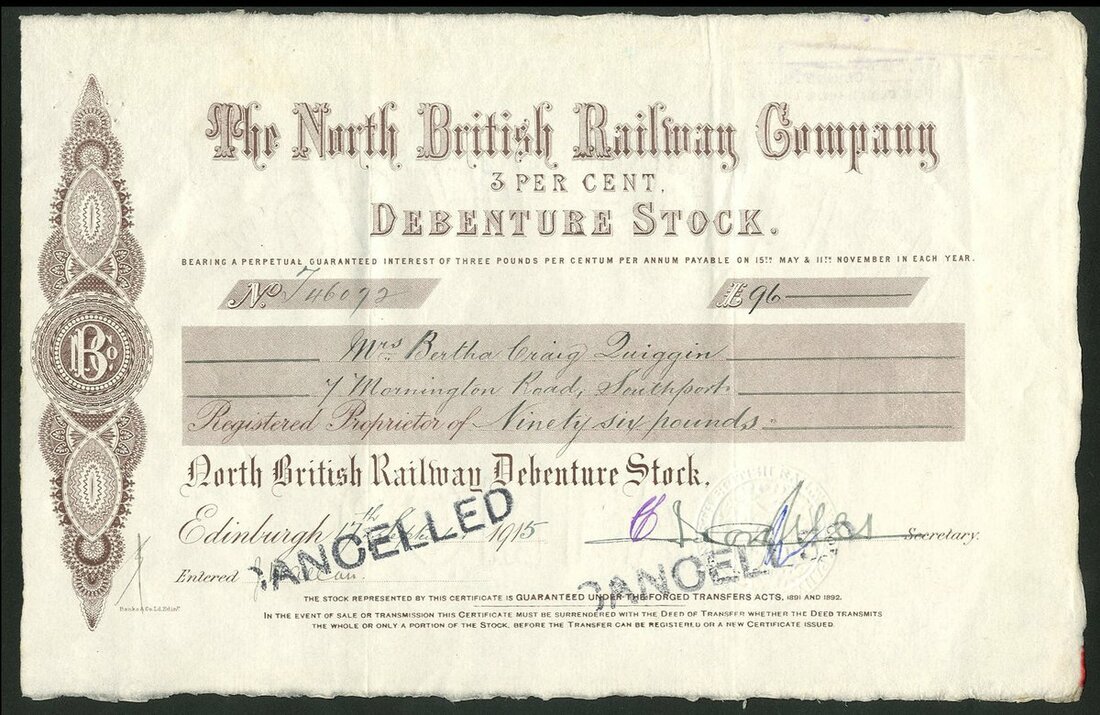 The North British Railway Company
3 PER CENT.
DEBENTURE STOCK.
BEARING A PERPETUAL GUARANTEED INTEREST OF THREE POUNDS PER CENTUM PER ANNUM PAYABLE ON 15TH MAY & 11TH NOVEMBER IN EACH YEAR.
No T46092 £96
Mrs Bertha Craig Quiggin
7 Mornington Road, Southport
Registered Proprietor of Ninety six pounds
North British Railway Debenture Stock.
Edinburgh 17th 1915
CANCELLED
Secretary.
CANCELLED
Entered
THE STOCK REPRESENTED BY THIS CERTIFICATE IS GUARANTEED UNDER THE FORGED TRANSFERS ACTS, 1891 AND 1892.
Banks & Co. Ld. Edinr.
IN THE EVENT OF SALE OR TRANSMISSION THIS CERTIFICATE MUST BE SURRENDERED WITH THE DEED OF TRANSFER WHETHER THE DEED TRANSMITS
THE WHOLE OR ONLY A PORTION OF THE STOCK, BEFORE THE TRANSFER CAN BE REGISTERED OR A NEW CERTIFICATE ISSUED.